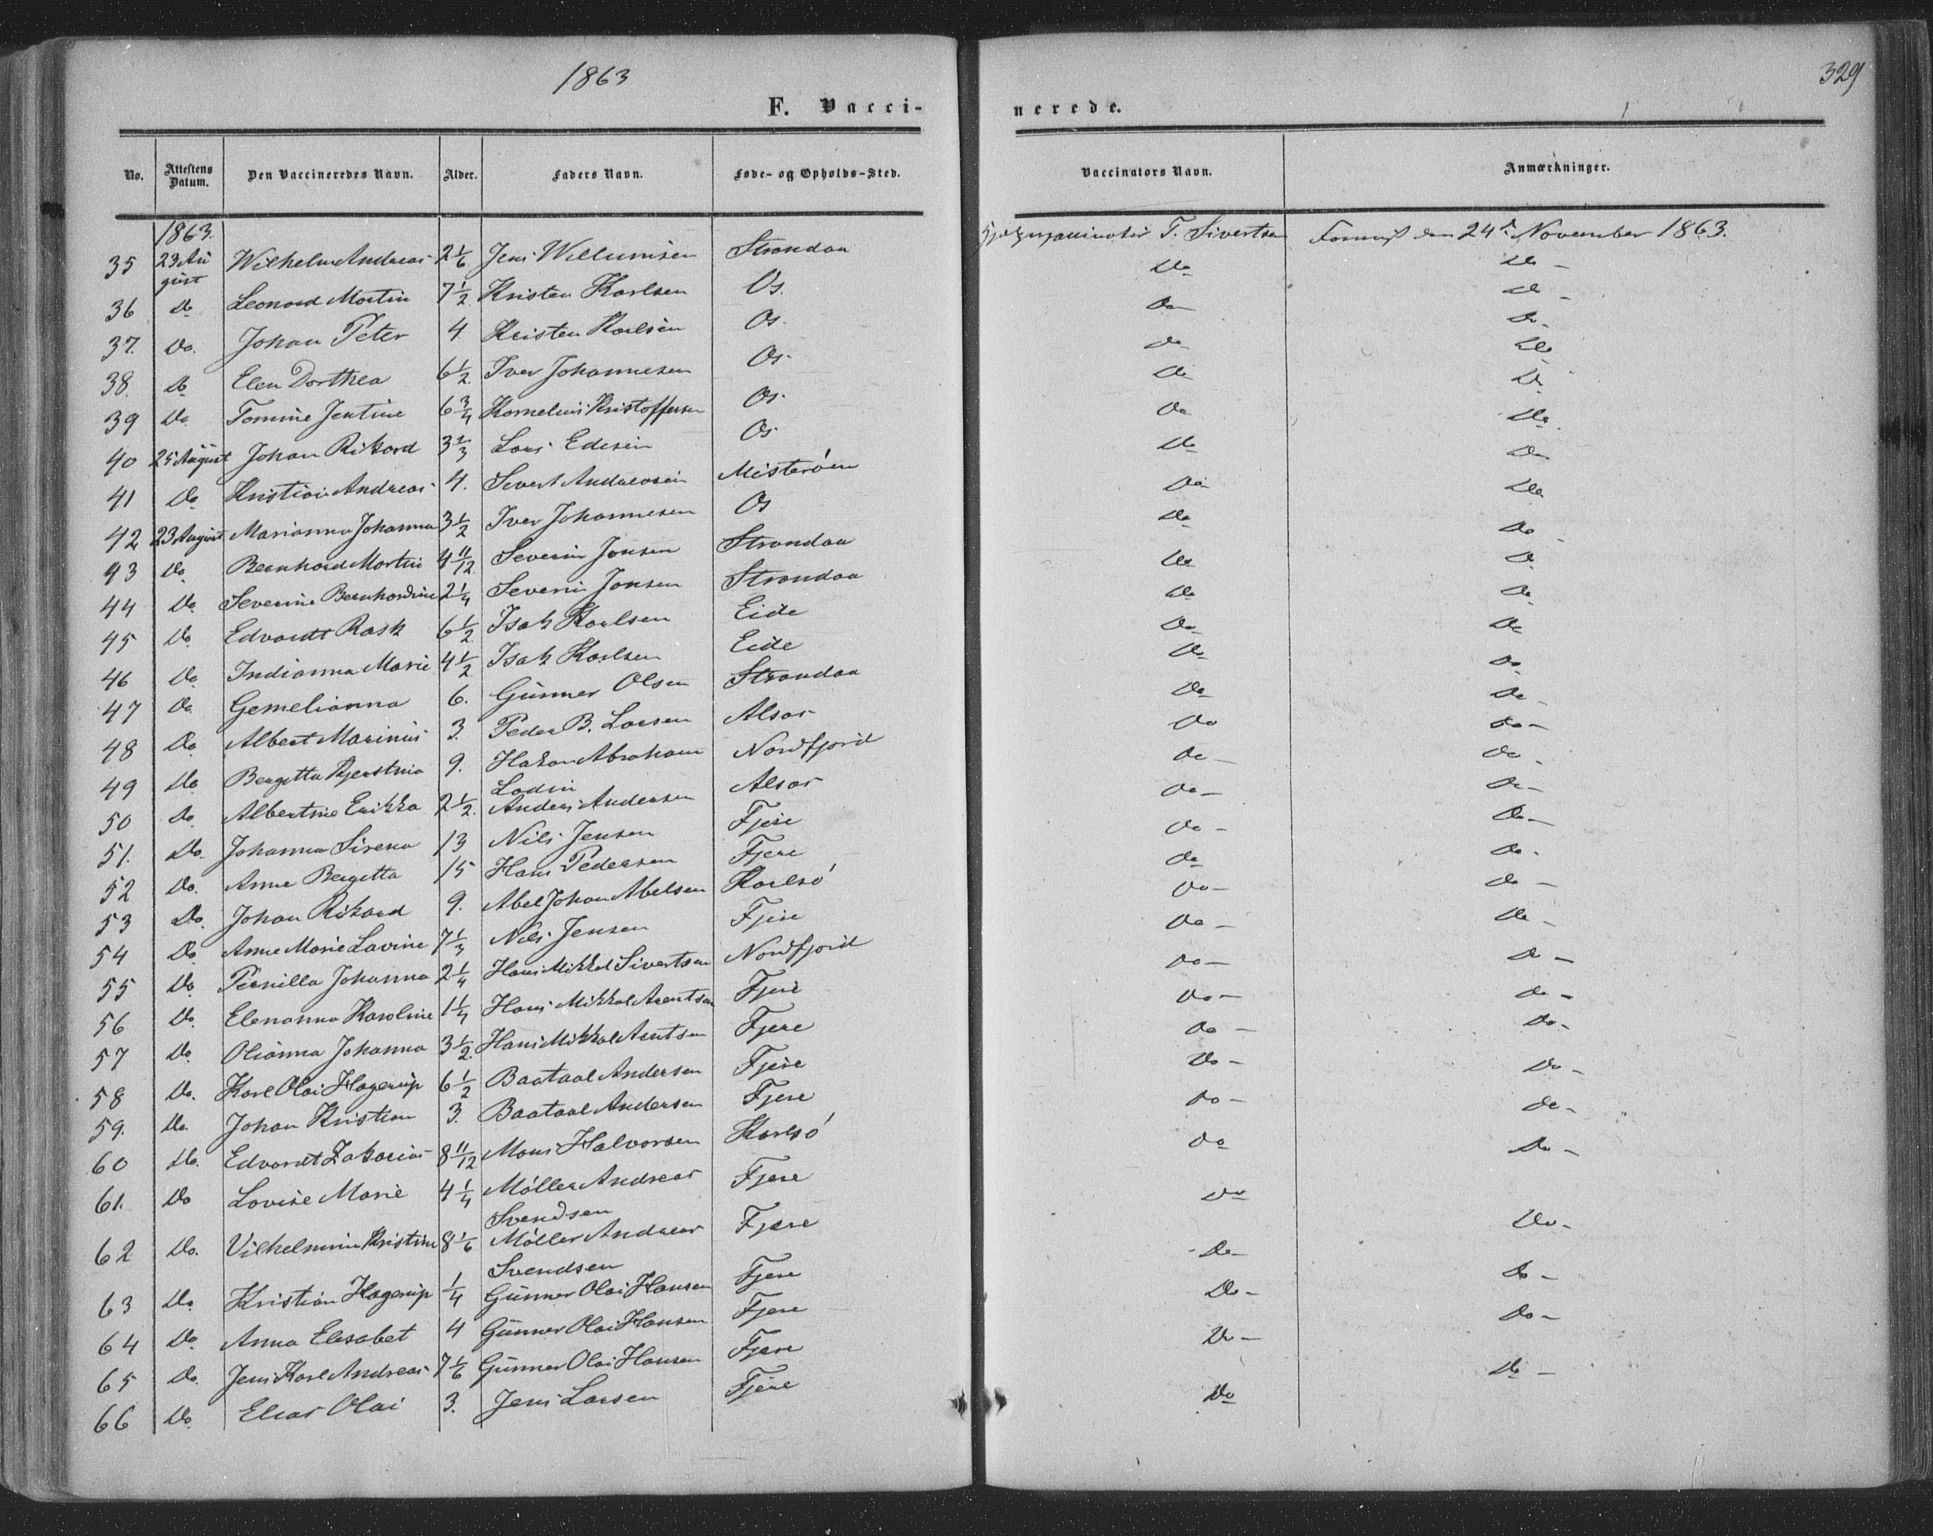 1863
329
F. Vacci-
nerede.
No. Attestens Datum. Den Vaccineredes Navn. Alder. Faders Navn. Føde- og Opholds-Sted. Vaccinators Navn. Anmærkninger.
1863.
35 23 August Wilhelm Andreas 2 1/6 Jens Willumsen Strandaa T. Sivertsen den 24de November 1863.
36 Do Leonard Martin 7 1/2 Kristen Karlsen Os. Do Do -
37. Do. Johan Peter 4 Kristen Karlsen Os. Do Do
38. Do Elen Dorthea 6 1/2 Iver Johannesen Os. Do Do
39 Do. Tomine Jentine 6 3/4 Kornelius Kristoffersen Os. Do Do
40 25 August Johan Rikard 3 1/3 Lars Os Do Do
41 Do Kristian Andreas 4. Sivert Andreasen Misterøen Do Do
42 23 August Marianna Johanna 3 1/2 Iver Johannesen Os Do Do
43 Do Bernhard Martin 4 11/12 Severin Jonsen Strandaa Do Do
44 Do. Severine Bernhardine 2 1/4 Severin Jonsen Strandaa Do Do
45 Do Edvardt Rask 6 1/2 Isak Karlsen Eide Do Do
46 Do. Indianna Marie 4 1/2 Isak Karlsen Eide Do Do
47 Do. Gemelianna 6. Gunner Olsen Strandaa Do Do
48 Do Albert Marinius 3. Peder B. Larsen Alsos Do Do
49 Do Bergetta Kjerstina 9. Hakon Abraham Ladin Nordfjord Do - Do -
50 Do. Albertine Erikka 2 1/2 Anders Andersen Alsos Do - Do -
51. Do. Johanna Sirena 13 Nils Jensen Fjere Do - Do -
52 Do. Anne Bergetta 15 Hans Pedersen Fjere Do Do -
53 Do. Johan Rikard 9. Abel Johan Abelsen Karlsø Do - Do -
54 Do. Anne Marie Lavine 7 1/3 Nils Jensen Fjere Do - Do -
55 Do. Pernilla Johanna 2 1/4 Hans Mikkel Sivertsen Nordfjord Do - Do -
56 Do. Elenanna Karoline 1 1/4 Hans Mikkal Arentsen Fjere Do - Do -
57 Do. Olianna Johanna 3 1/2 Hans Mikkal Arentsen Fjere Do - Do -
58 Do. Karl Olai Hagerup 6 1/2 Baataal Andersen Fjere Do - Do -
59. Do. Johan Kristian 3. Baataal Andersen Fjere Do - Do -
60 Do. Edvardt Zakarias 8 11/12 Mons Halvorsen Karlsø Do Do -
61. Do Lovise Marie 4 1/4 Møller Andreas Svendsen Fjere Do Do -
62 Do. Vilhelmina Kristine 8 1/6 Møller Andreas Svendsen Fjere Do - Do -
63 Do. Kristian Hagerup 1/4 Gunner Olai Hansen Fjere Do - Do -
64 Do. Anna Elisabet 4 Gunner Olai Hansen Fjere Do - Do -
65 Do. Jens Karl Andreas 7 1/6 Gunner Olai Hansen Fjere Do Do -
66 Do. Elias Olai 3. Jens Larsen Fjere